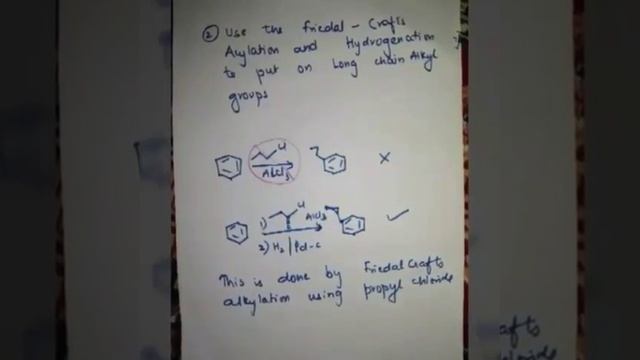 ② Use the friedal - Crafts
Acylation and Hydrogenation
to put on Long chain Alkyl
groups
Cl
AlCl3
×
1) Cl AlCl3
2) H2 | Pd-c
This is done by Friedal Crafts
alkylation using propyl chloride
afts
chloride